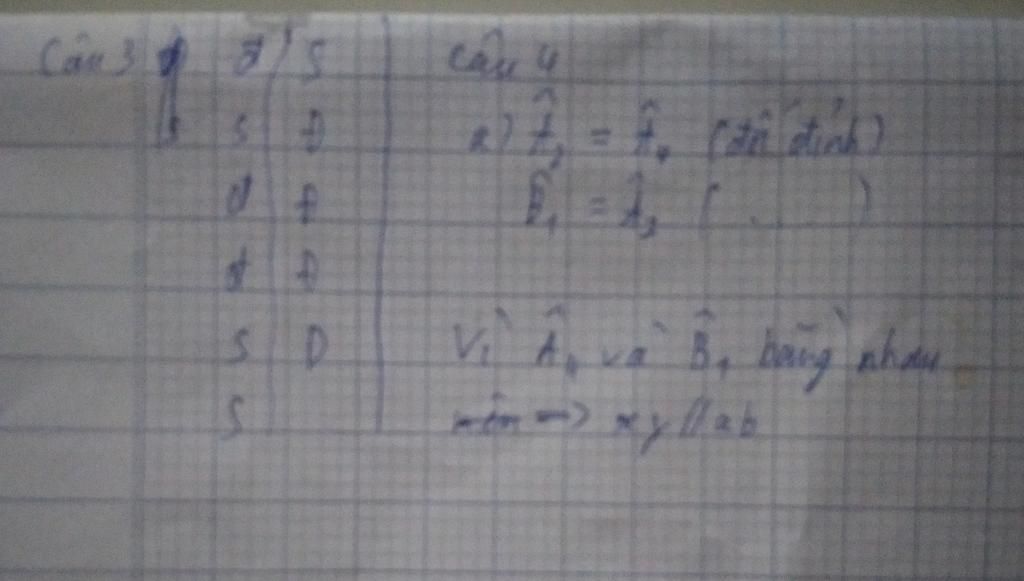 Câu 3 đ S
S Đ
đ Đ
đ Đ
S D
S
Câu 4
a) Â = Â₄ (đối đỉnh)
B̂₁ = Â ( )
Vì Â₄ và B̂₁ bằng nhau
=> xy // ab